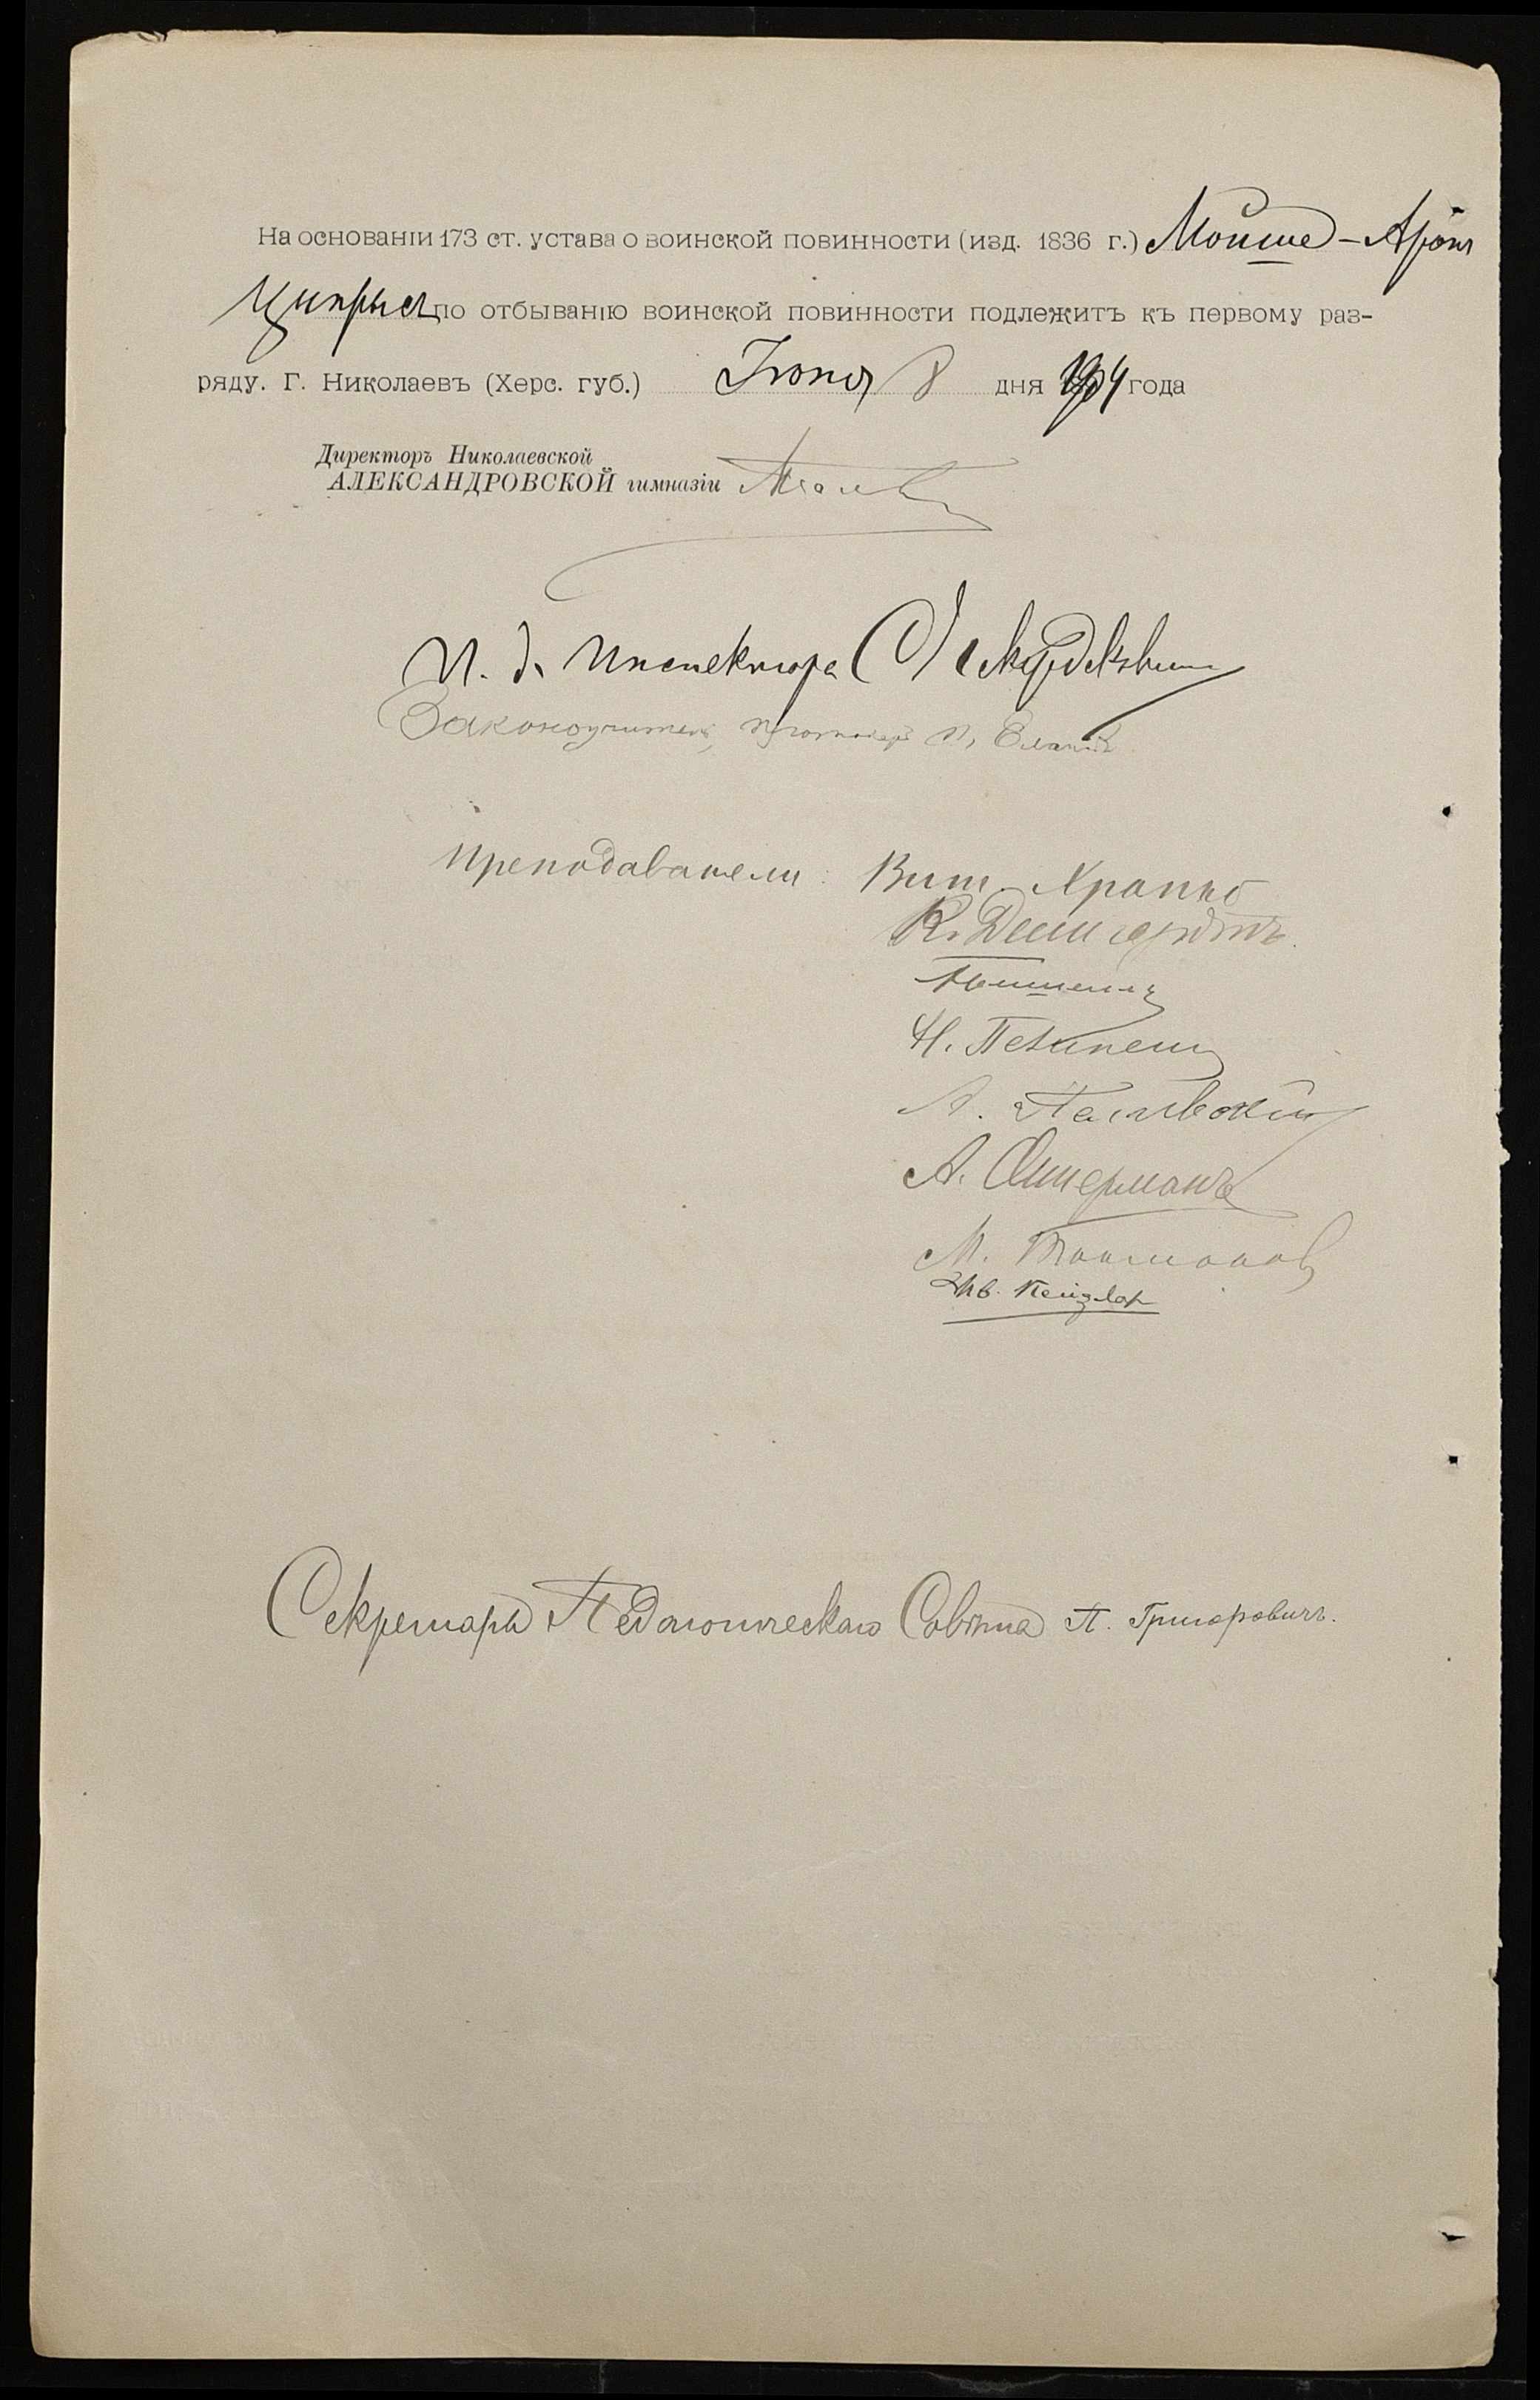 На основаніи 173 ст. устава о воинской повинности (изд. 1836 г.) Мойше-Аронъ
Циприсъ по отбыванію воинской повинности подлежитъ къ первому раз-
ряду. Г. Николаевъ (Херс. губ.) Іюня 8 дня 1904 года
Директоръ Николаевской
АЛЕКСАНДРОВСКОЙ гимназіи
И. д. Инспектора
Законоучитель, протоіерей
Преподаватели: Вит. Храпко
К.
Н.
А.
А. Оттерманъ
М. Токмаковъ
Секретарь Педагогическаго Совѣта П. Григоровичъ.